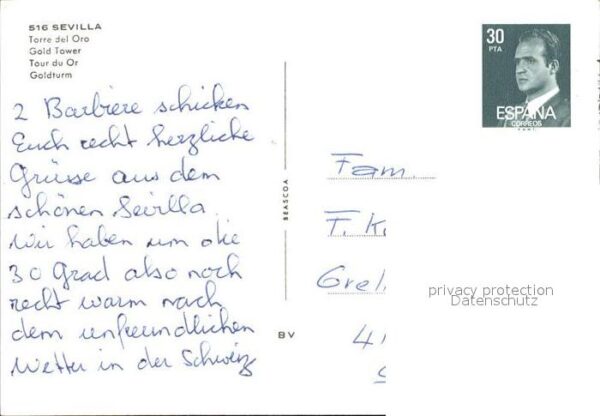 516 SEVILLA
Torre del Oro
Gold Tower
Tour du Or
Goldturm
30
PTA
ESPAÑA
CORREOS
F.N.M.T.
2 Barbiere schicken
Euch recht herzliche
Grüsse aus dem
schönen Sevilla.
Wir haben um die
30 Grad also noch
recht warm nach
dem unfreundlichen
Wetter in der Schweiz
BEASCOA
BV
Fam.
F. K
Grel
privacy protection
Datenschutz
4